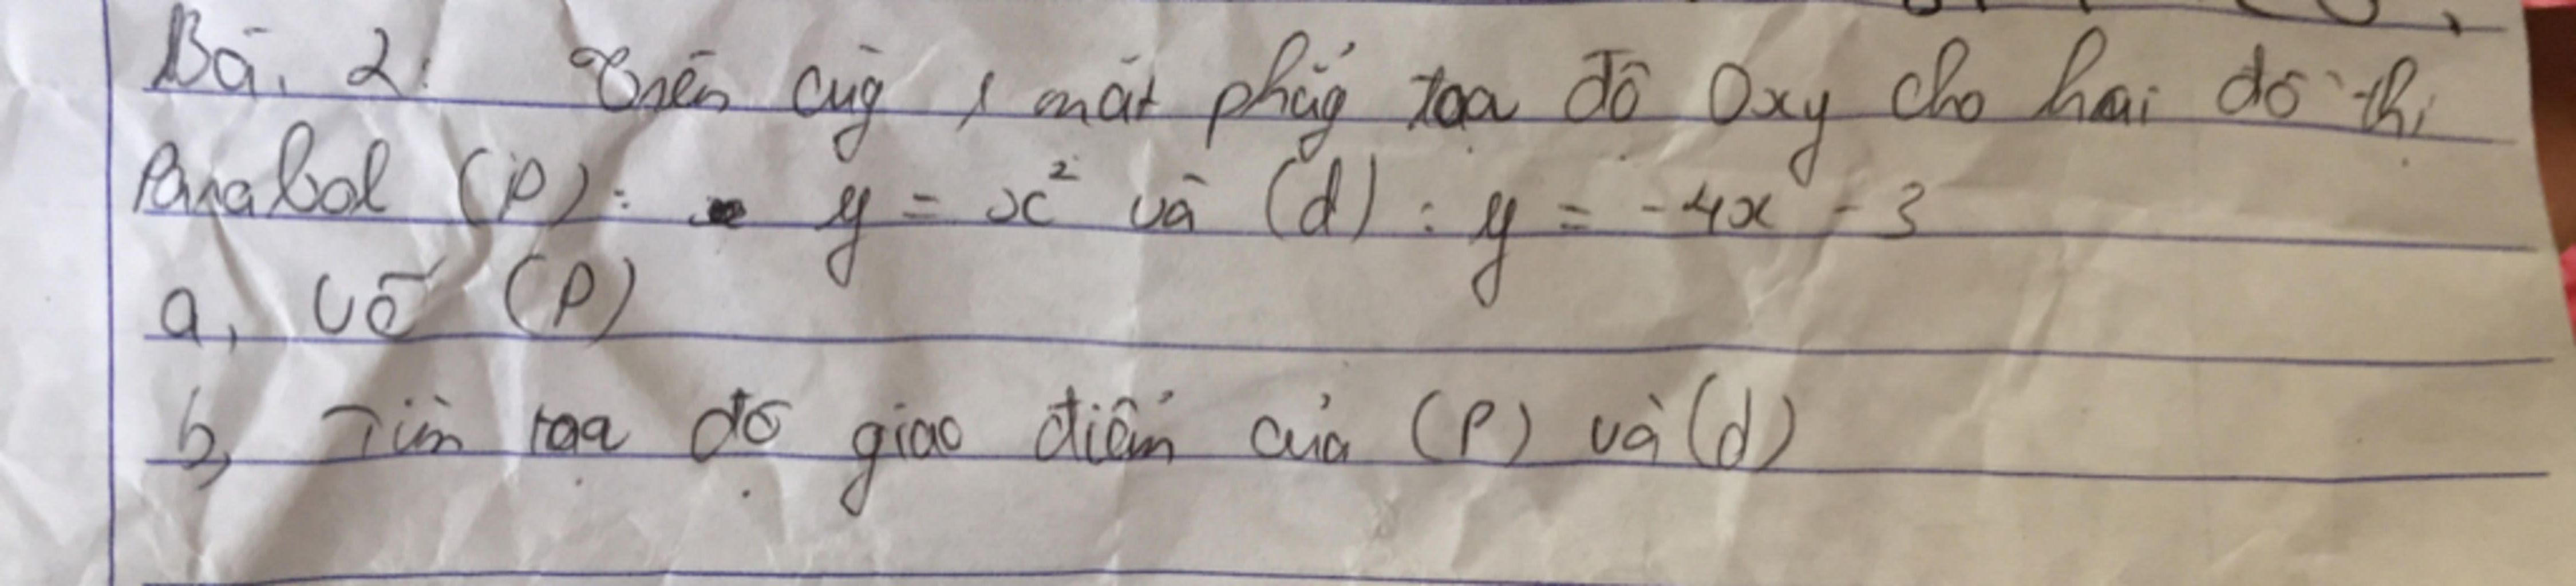 Bài 2: Trên cùg 1 mặt phẳg tọa độ Oxy cho hai đồ thị
Parabol (P): y = x² và (d) : y = -4x - 3
a, Vẽ (P)
b, Tìm tọa độ giao điểm của (P) và (d)